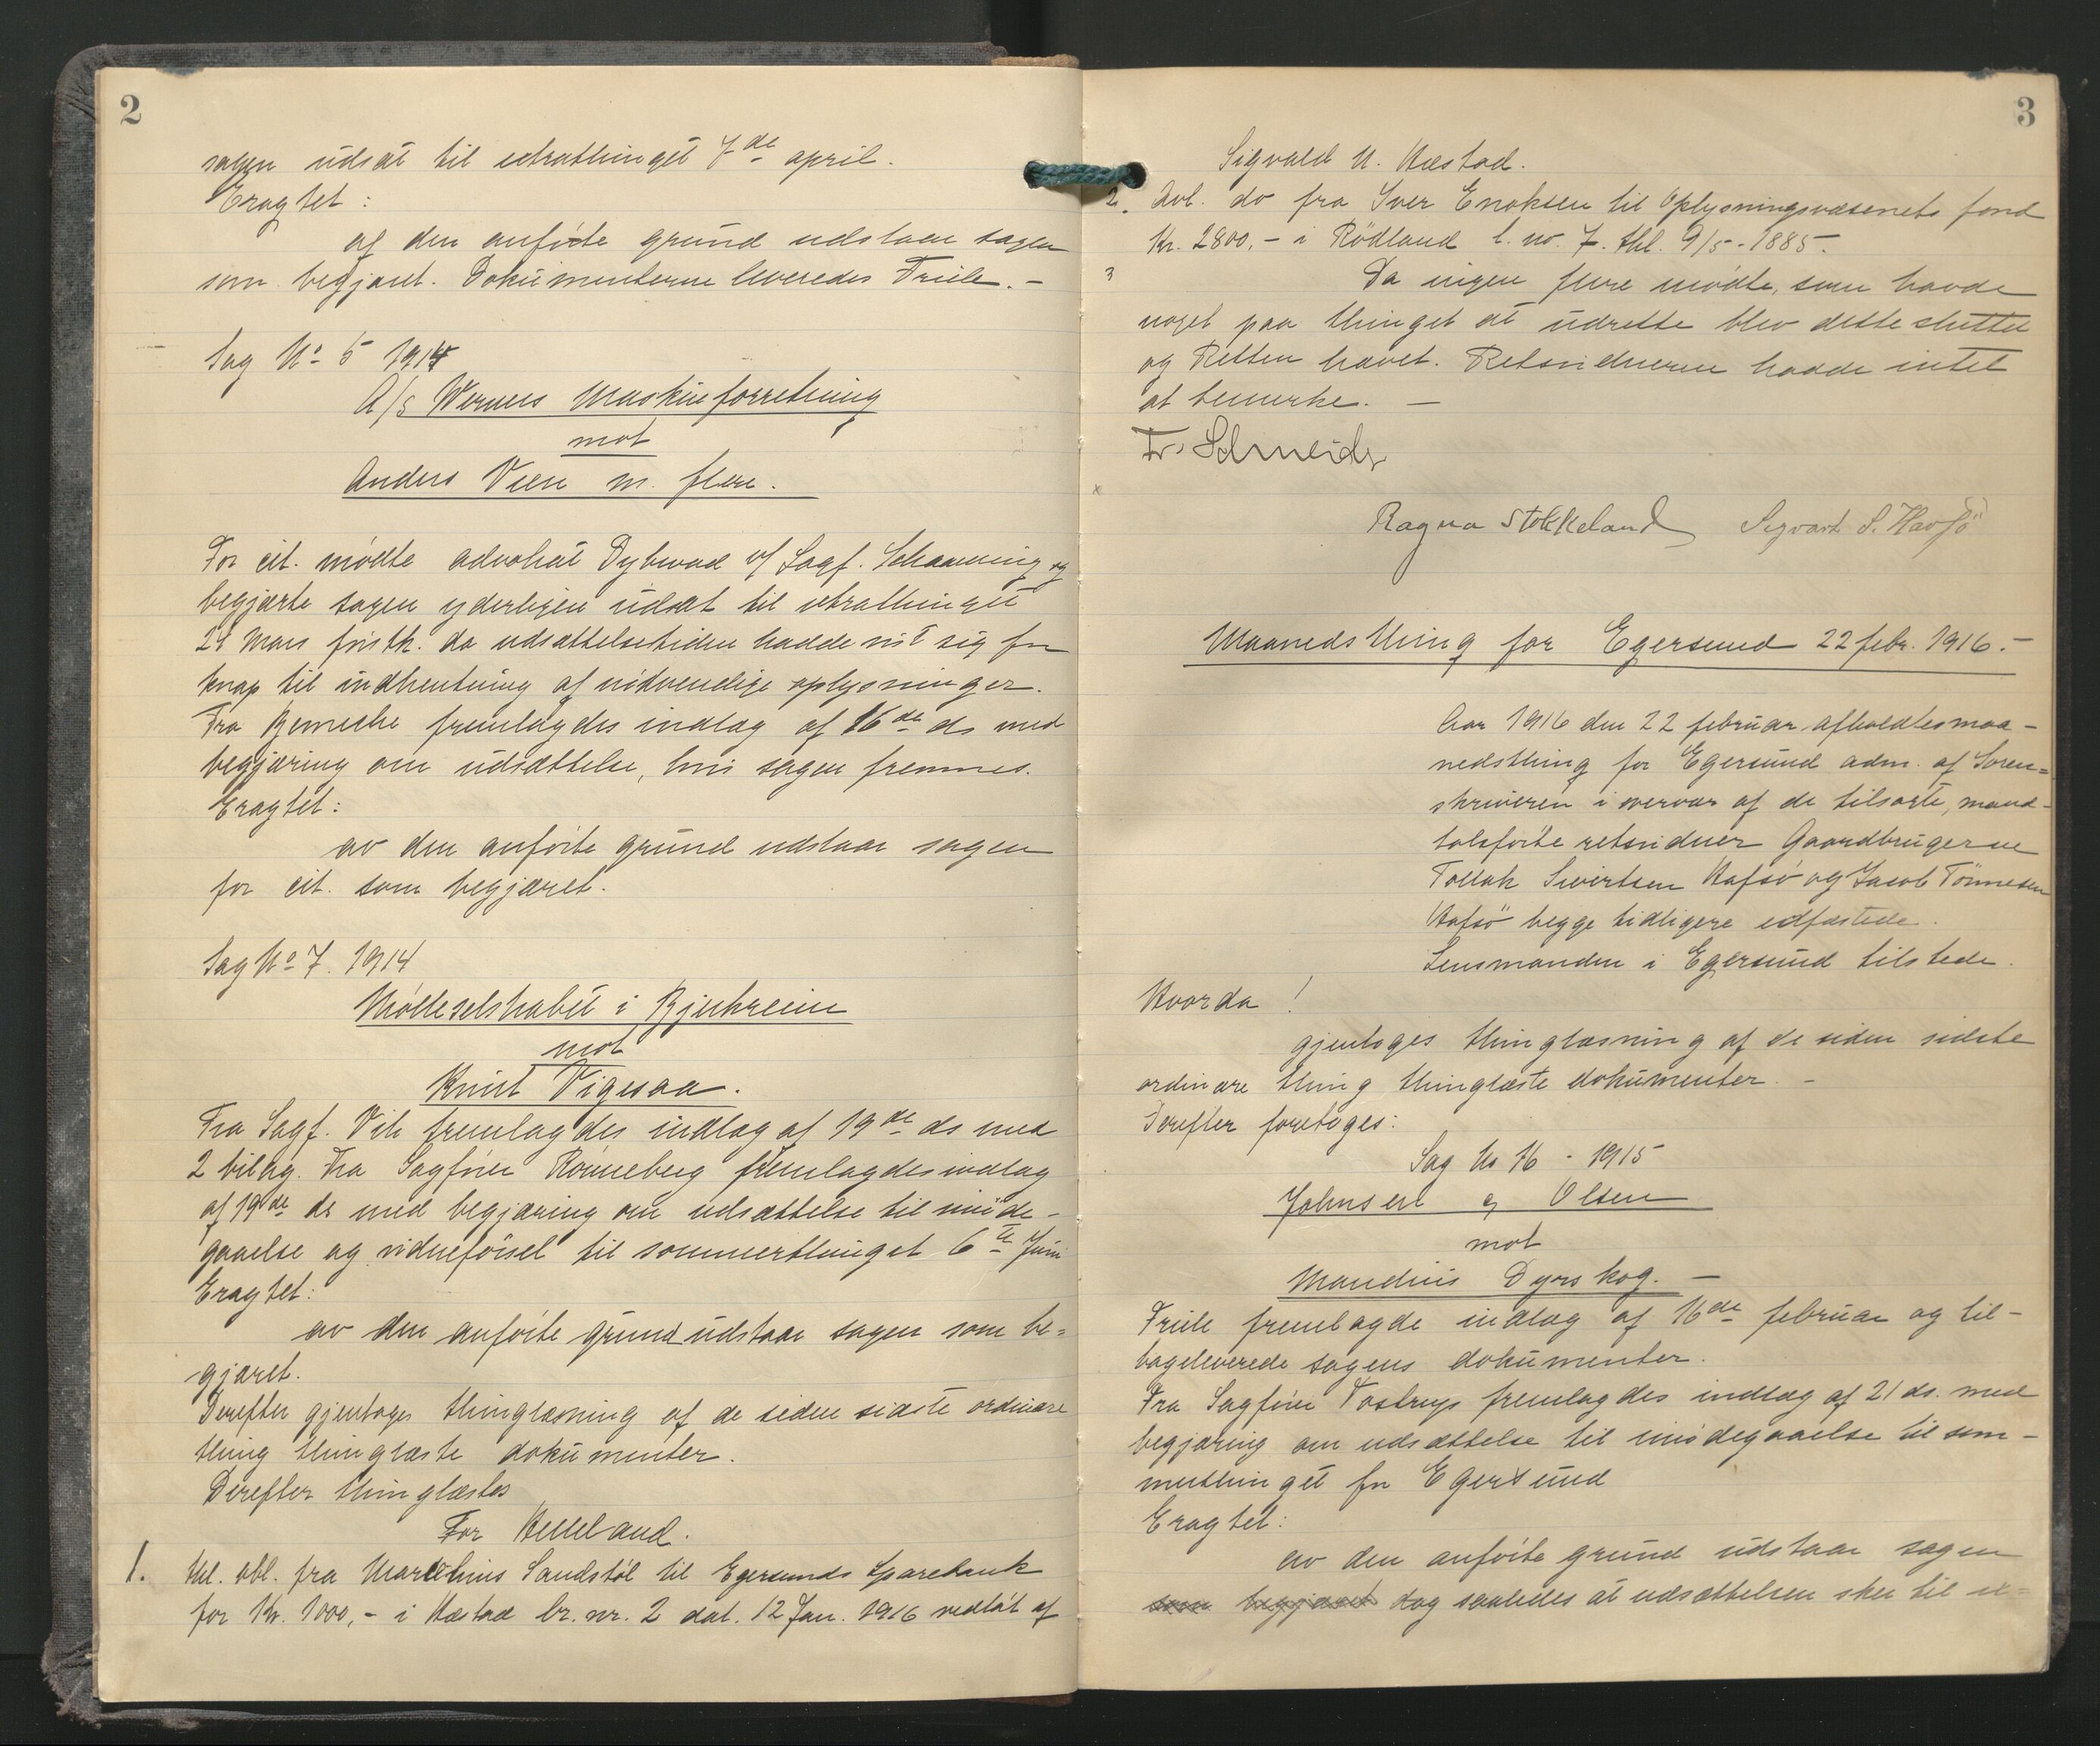 2
sagen udsat til extrathinget 7de april.
Eragtet:
af den anførte grund udstaar sagen
som begjæret. Dokumenterne leveredes Friele. -
Sag No 5 1914
A/s Werners Maskinforretning
mot
Anders Veen m. flere.
For cit. mødte advokat Dybwad v/ Sagf. Schanning og
begjærte sagen yderligere udsat til extrathinget
24 Mars førstk. da udsættelsestiden hadde vist sig for
knap til indhentning af nødvendige oplysninger.
Fra fremlagdes indlæg af 16de ds med
begjæring om udsættelse, hvis sagen fremmes.
Eragtet:
av den anførte grund udstaar sagen
for cit. som begjæret.
Sag No 7. 1914
Mølleselskabet i Bjerkreim
mot
Knut Vigesaa.
Fra Sagf. Vik fremlagdes indlæg af 19de ds med
2 bilag. Fra Sagfører Rønneberg fremlagdes indlæg
af 19de ds med begjæring om udsættelse til imøde-
gaaelse og vidneførsel til sommerthinget 6te Juni
Eragtet:
av den anførte grund udstaar sagen som be=
gjæret.
Derefter gjentoges thinglæsning af de siden sidste ordinære
thing thinglæste dokumenter.
Derefter thinglæstes
For Helleland.
1. Utl. obl. fra Marthinus Sandstøl til Egersunds Sparebank
for Kr. 1000,- i Hæstad br. nr. 2 dat. 12 Jan. 1916 vedtat af
3
Sigvald N. Hæstad.
2. Avl. do fra Iver Enoksen til Oplysningsvæsenets fond
Kr. 2800,- i Rødland l. no. 7. thl. 9/5-1885.
3 Da ingen flere mødte, som havde
noget paa thinget at udrette blev dette sluttet
og Retten hævet. Retsvidnerne hadde intet
at bemerke. -
Fr. Schneider
Ragna Stokkeland Sigvart S. Havsø
Maanedsthing for Egersund 22 febr. 1916.-
Aar 1916 den 22 februar afholdtes maa-
nedsthing for Egersund adm. af Soren=
skriveren i overvær af de tilsagte, mand-
talsførte retsvidner Gaardbrugerne
Tollak Sivertsen Hafsø og Jacob Tønnesen
Hafsø begge tidligere edfæstede.
Lensmanden i Egersund tilstede.
Hvorda!
gjentoges thinglæsning af de siden sidste
ordinære thing thinglæste dokumenter. -
Derefter foretoges:
Sag No 16 - 1915
Johnsen og Olsen
mot
Maudius Dyrskog. -
Friele fremlagde indlæg af 16de februar og til-
bageleverede sagens dokumenter.
Fra Sagfører Tostrup fremlagdes indlæg af 21 ds. med
begjæring om udsættelse til imødegaaelse til som-
merthinget for Egersund
Eragtet:
av den anførte grund udstaar sagen
som begjæret dog saaledes at udsættelsen sker til